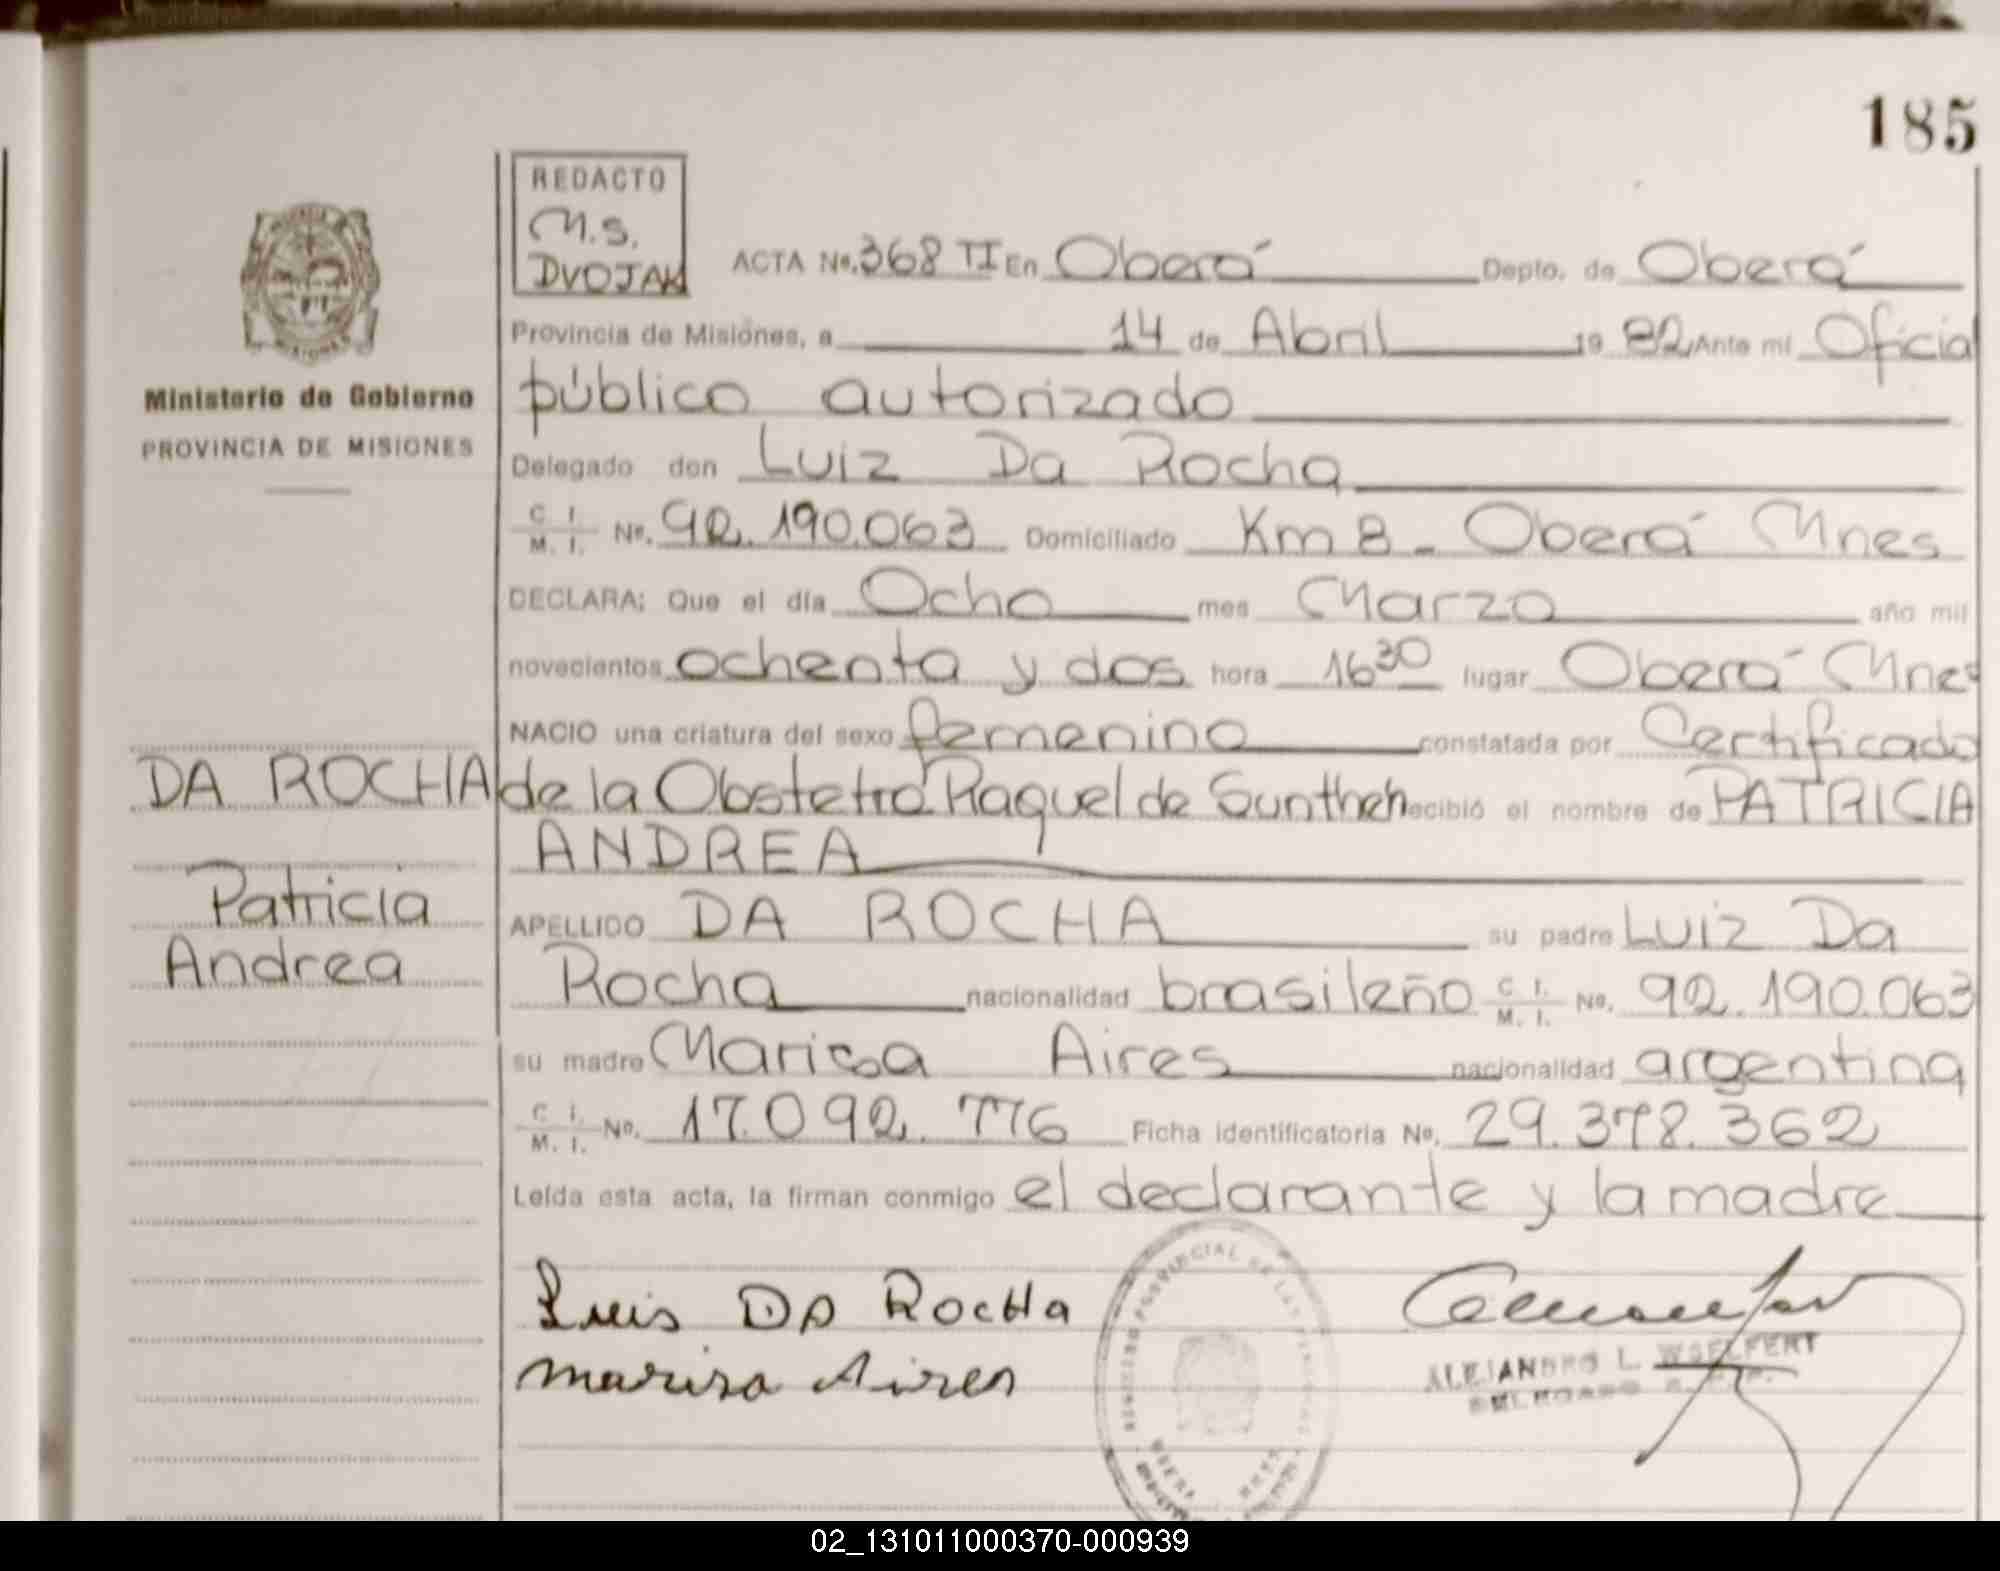 185
REDACTO
M.S.
DVOJAK
ACTA No. 368 TI En Oberá Depto. de Oberá
Provincia de Misiones, a 14 de Abril 19 82 Ante mi Oficial
público autorizado
Delegado don Luiz Da Rocha
C. I. M. I. No. 92.190.063 Domiciliado Km 8 - Oberá Mnes
DECLARA: Que el día Ocho mes Marzo año mil
novecientos ochenta y dos hora 16 30 lugar Oberá Mnes
NACIO una criatura del sexo femenino constatada por Certificado
de la Obstetra Raquel de recibió el nombre de PATRICIA
ANDREA
APELLIDO DA ROCHA su padre Luiz Da
Rocha nacionalidad brasileño C. I. M. I. No. 92.190.063
su madre Marisa Aires nacionalidad argentina
C. I. M. I. No. 17.092.776 Ficha identificatoria No. 29.378.362
Leída esta acta, la firman conmigo el declarante y la madre
Luis Da Rocha
Marisa Aires
ALEJANDRO L. WSELFERT
Ministerio de Gobierno
PROVINCIA DE MISIONES
DA ROCHA
Patricia
Andrea
02_131011000370-000939